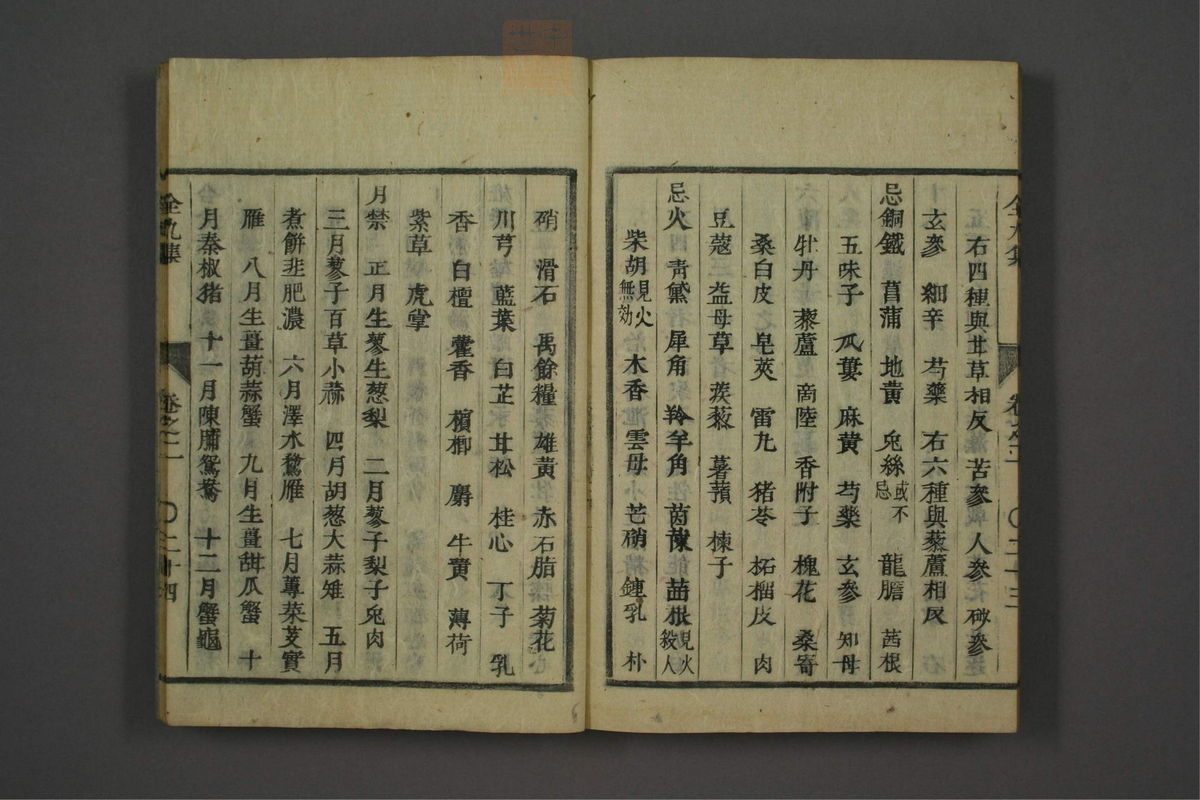 右四種與甘草相反 苦參 人參 砂參
玄參 細辛 芍藥 右六種與藜蘆相反
忌銅鐵 菖蒲 地黃 兎絲或不忌 龍膽 茜根
五味子 瓜蔞 麻黃 芍藥 玄參 知母
牡丹 藜蘆 商陸 香附子 槐花 桑寄
桑白皮 皂莢 雷丸 猪苓 柘榴皮 肉
豆蔻 益母草 蒺藜 薯蕷 楝子
忌火 青黛 犀角 羚羊角 茵蔯 苗根見火殺人
柴胡見火無効 木香 雲母 芒硝 鍾乳 朴
全九集 卷之二 〇二十三
硝 滑石 禹餘糧 雄黃 赤石脂 菊花
川芎 藍葉 白芷 甘松 桂心 丁子 乳
香 白檀 藿香 檳榔 麝 牛黃 薄荷
紫草 虎掌
月禁 正月生蓼生葱梨 二月蓼子梨子兎肉
三月蓼子百草小蒜 四月胡葱大蒜雉 五月
煮餅韭肥濃 六月澤水鶩雁 七月蓴菜芰實
雁 八月生薑葫蒜蟹 九月生薑甜瓜蟹 十
月秦椒猪 十一月陳脯鴛鴦 十二月蟹龜
全九集 卷之二 〇二十四